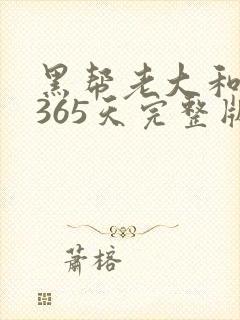 黑帮老大和
365天完整版
萧榕